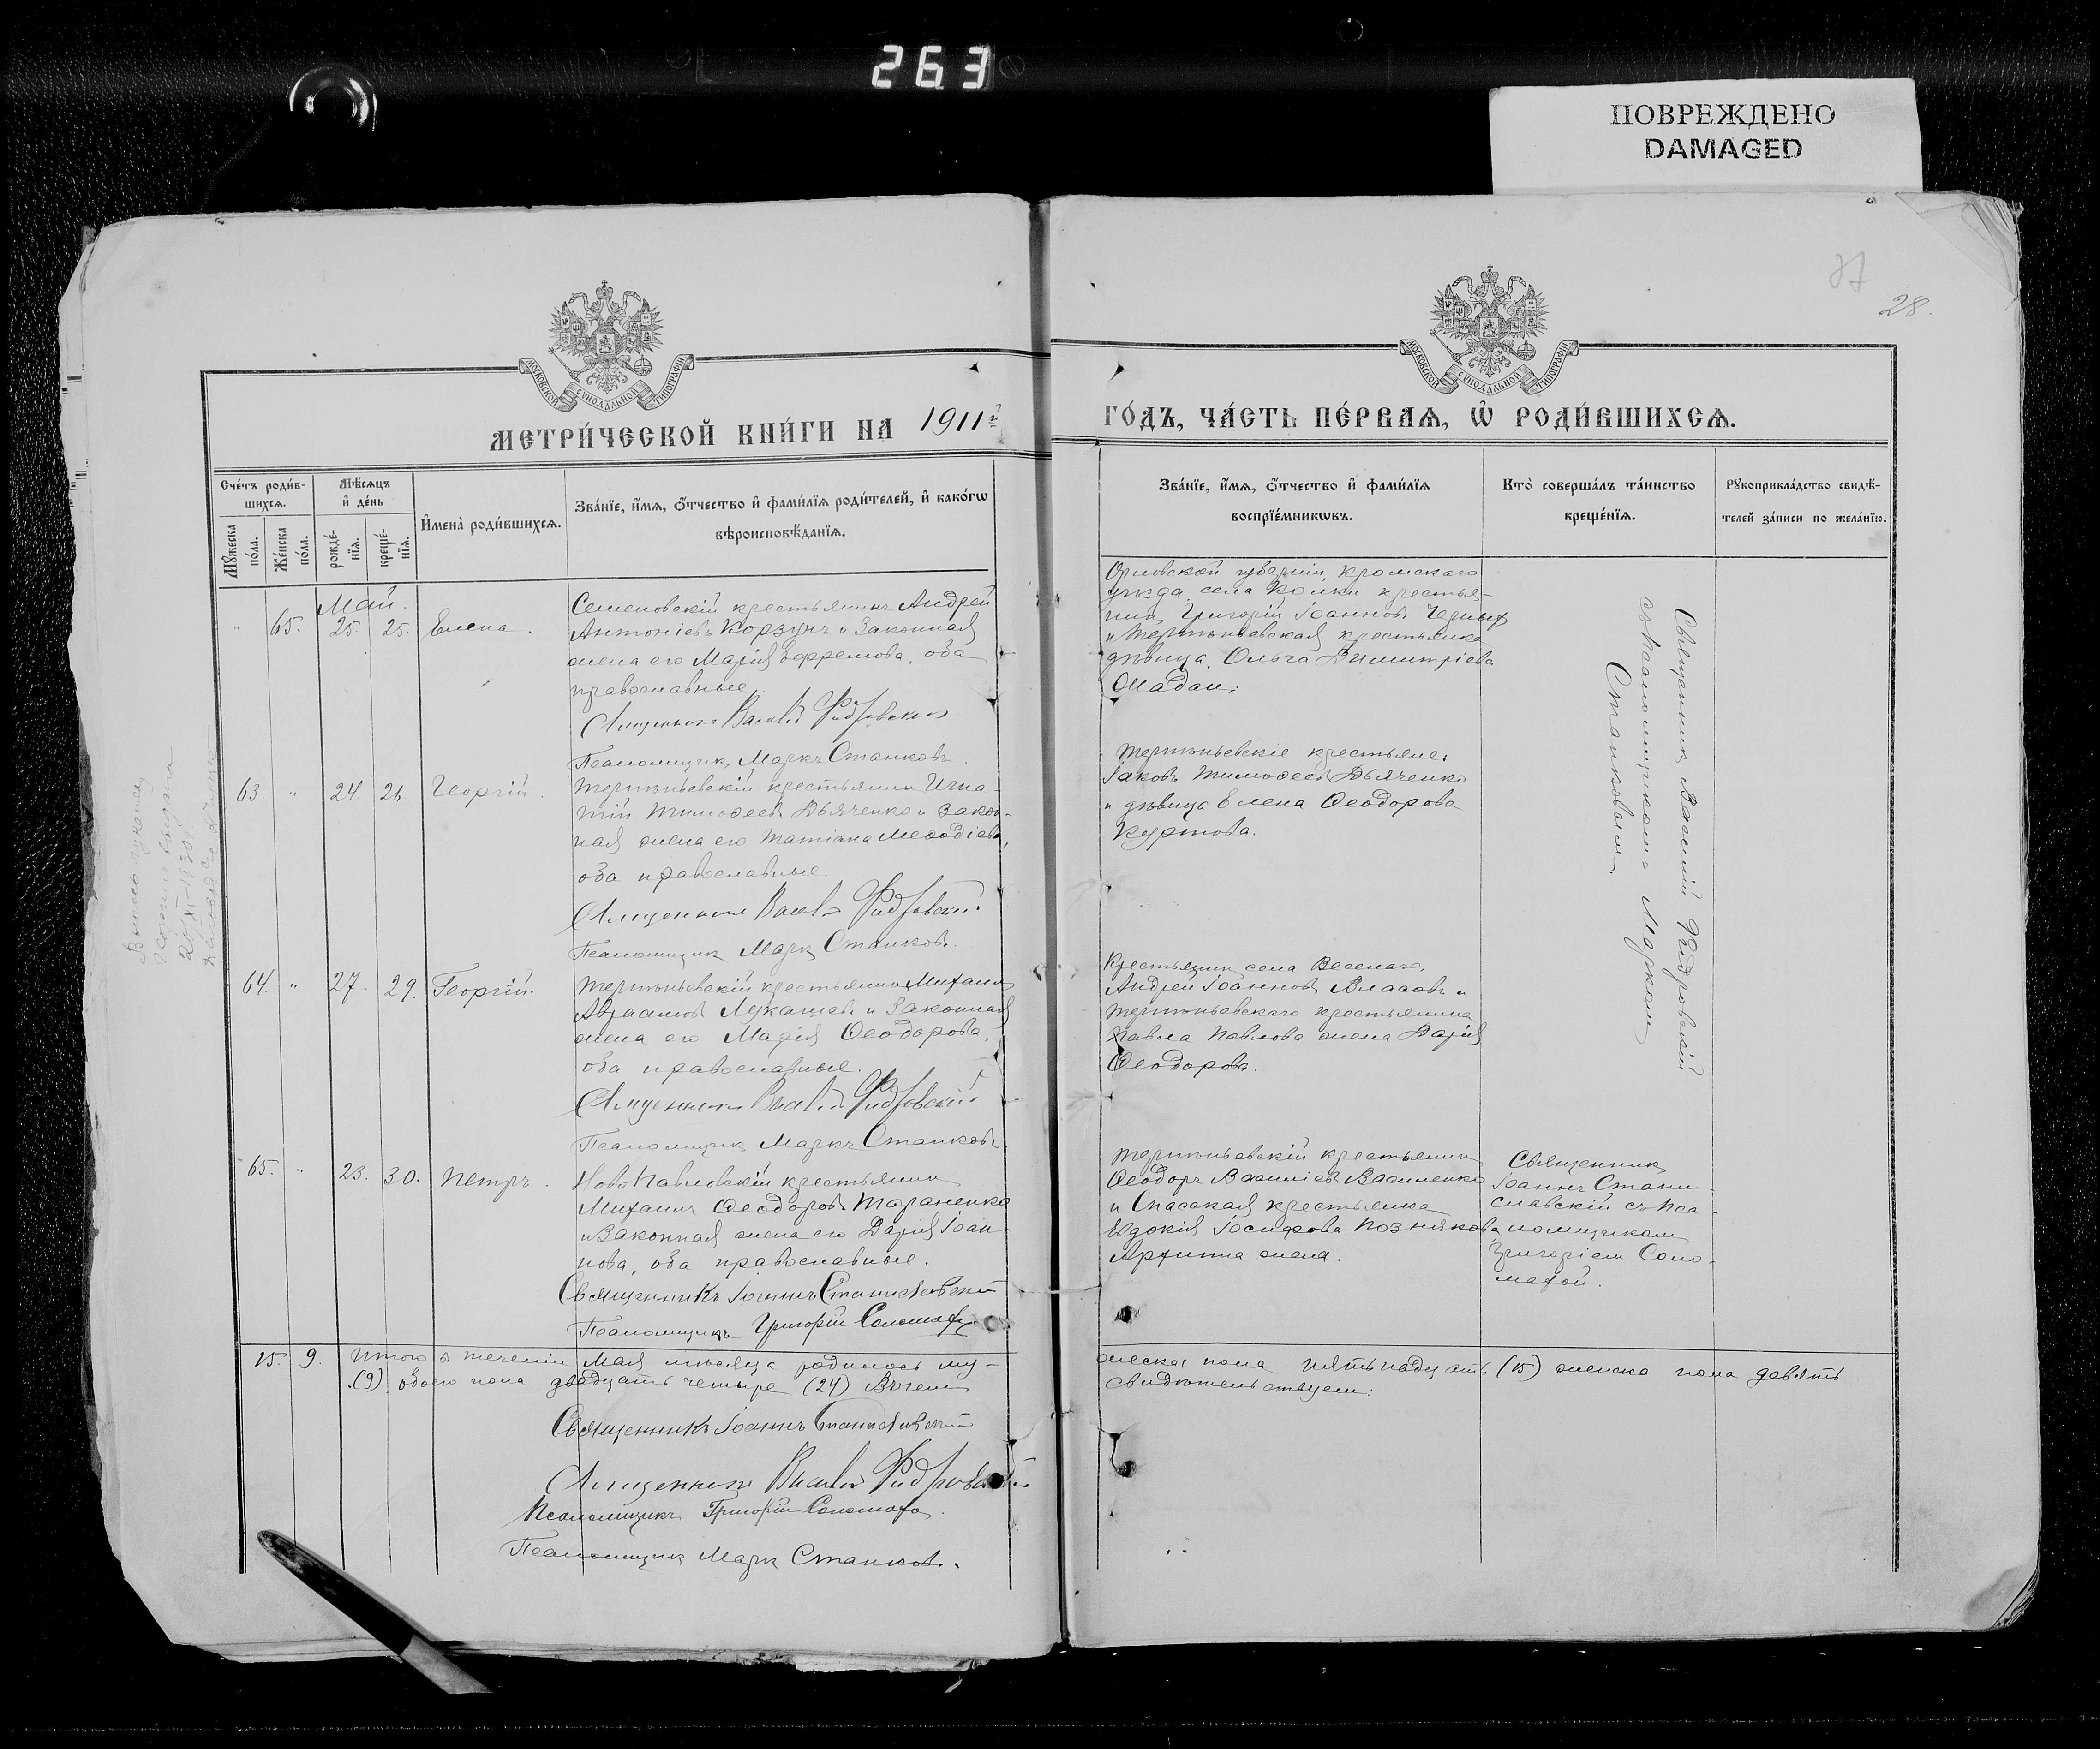 263
ПОВРЕЖДЕНО
DAMAGED
28.
МОСКОВСКОЙ СУНОДАЛЬНОЙ ТИПОГРАФІИ
МОСКОВСКОЙ СУНОДАЛЬНОЙ ТИПОГРАФІИ
МЕТРИ́ЧЕСКОЙ КНИ́ГИ НА 1911й
ГО́ДЪ, ЧА́СТЬ ПЕ́РВАѦ, Ѡ҆ РОДИ́ВШИХСѦ.
Сче́тъ роди́в-
шихсѧ.
Мꙋ́жеска по́ла.
Же́нска по́ла.
Мѣ́сѧцъ и҆ де́нь
рожде́-нїѧ.
креще́-нїѧ.
И҆мена̀ роди́вшихсѧ.
Зва́нїе, и҆́мѧ, ѻ҆́тчество и҆ фами́лїѧ роди́телей, и҆ како́гѡ
вѣроисповѣ́данїѧ.
Зва́нїе, и҆́мѧ, ѻ҆́тчество и҆ фами́лїѧ
воспрїе́мникѡвъ.
Кто̀ соверша́лъ та́инство
креще́нїѧ.
Рꙋкоприкла́дство свидѣ́-
телей за́писи по жела́нїю.
Май.
" 65. 25. 25. Елена.
Семеновскій крестьянинъ Андрей
Антоніевъ Корзунъ и законная
жена его Марія Ефремова, оба
православные.
Священникъ Василій Фидровскій
Псаломщикъ Маркъ Станковъ.
Орловской губерніи, Кромскаго
уѣзда, села Колки крестья-
нинъ, Григорій Іоанновъ Черныхъ
и Терпѣньевская крестьянка
дѣвица, Ольга Димитріева
Мадан.
Священникъ Василій Фидровскій
съ Псаломщикомъ Маркомъ
Станковымъ.
63. " 24. 26. Георгій.
Терпѣньевскій крестьянинъ Игна-
тій Тимофеевъ Дьяченко и закон-
ная жена его Татіана Мефодіева,
оба православные.
Священникъ Василій Фидровскій
Псаломщикъ Маркъ Станковъ.
Терпѣньевскіе крестьяне:
Іаковъ Тимофеевъ Дьяченко
и дѣвица Елена Феодорова
Куртова.
20/XI-1930
64. " 27. 29. Георгій.
Терпѣньевскій крестьянинъ Михаилъ
Авраамовъ Лукашевъ и законная
жена его Марія Феодорова,
оба православные.
Священникъ Василій Фидровскій
Псаломщикъ Маркъ Станковъ
Крестьянинъ села Веселаго,
Андрей Іоанновъ Власовъ и
Терпѣньевскаго крестьянина
Павла Павлова жена Дарія
Феодорова.
65. " 23. 30. Петръ.
НовоПавловскій крестьянинъ
Михаилъ Феодоровъ Тараненко
и законная жена его Дарія Іоан-
нова, оба православные.
Священникъ Іоаннъ Станиславскій
Псаломщикъ Григорій Соломаха
Терпѣньевскій крестьянинъ
Феодоръ Василіевъ Василенко
и Спасская крестьянка
Евдокія Іосифова Познякова,
Архипа жена.
Священникъ
Іоаннъ Стани-
славскій съ Пса-
ломщикомъ
Григоріем Соло-
махой.
15. 9. Итого въ теченіи Мая мѣсяца родилось му-
жеска пола пятьнадцать (15) женска пола девять
(9) обоего пола двадцать четыре (24) Въ чемъ
свидѣтельствуемъ:
Священникъ Іоаннъ Станиславскій
Священникъ Василій Фидровскій
Псаломщикъ Григорій Соломаха.
Псаломщикъ Маркъ Станковъ.